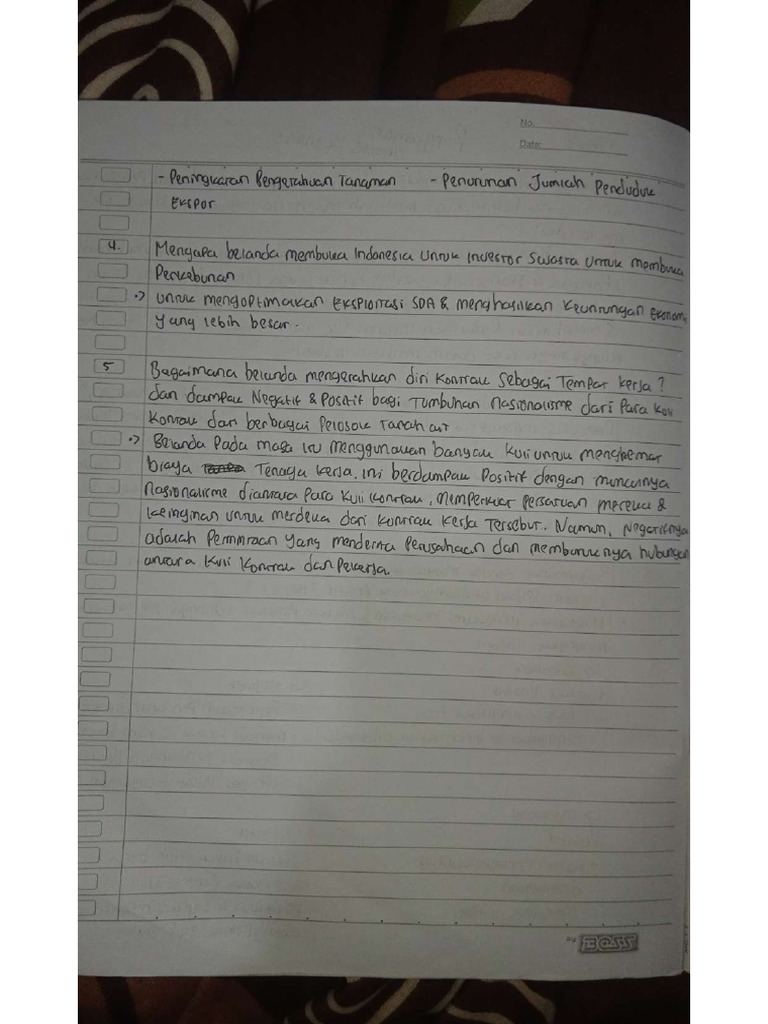 No.
Date:
- Peningkatan Pengetahuan Tanaman - Penurunan Jumlah Penduduk
Ekspor
4. Mengapa belanda membuka Indonesia untuk Investor Swasta untuk membuka
Perkebunan
untuk mengoptimalkan Eksploitasi SDA & menghasilkan keuntungan Ekonomi
yang lebih besar.
5 Bagaimana belanda mengerahkan diri Kontrak sebagai Tempat kerja?
dan dampak Negatif & Positif bagi Tumbuhan nasionalisme dari Para kuli
Kontrak dari berbagai Pelosok Tanah air
Belanda Pada masa itu menggunakan banyak kuli untuk menghemat
biaya Tenaga kerja. ini berdampak Positif dengan munculnya
nasionalisme diantara Para kuli kontrak, memperkuat persatuan mereka &
keinginan untuk merdeka dari kontrak kerja Tersebut. Namun, Negatifnya
adalah Permintaan yang menderita Perusahaan dan memburuknya hubungan
antara Kuli Kontrak dan Pekerja.
BOSS